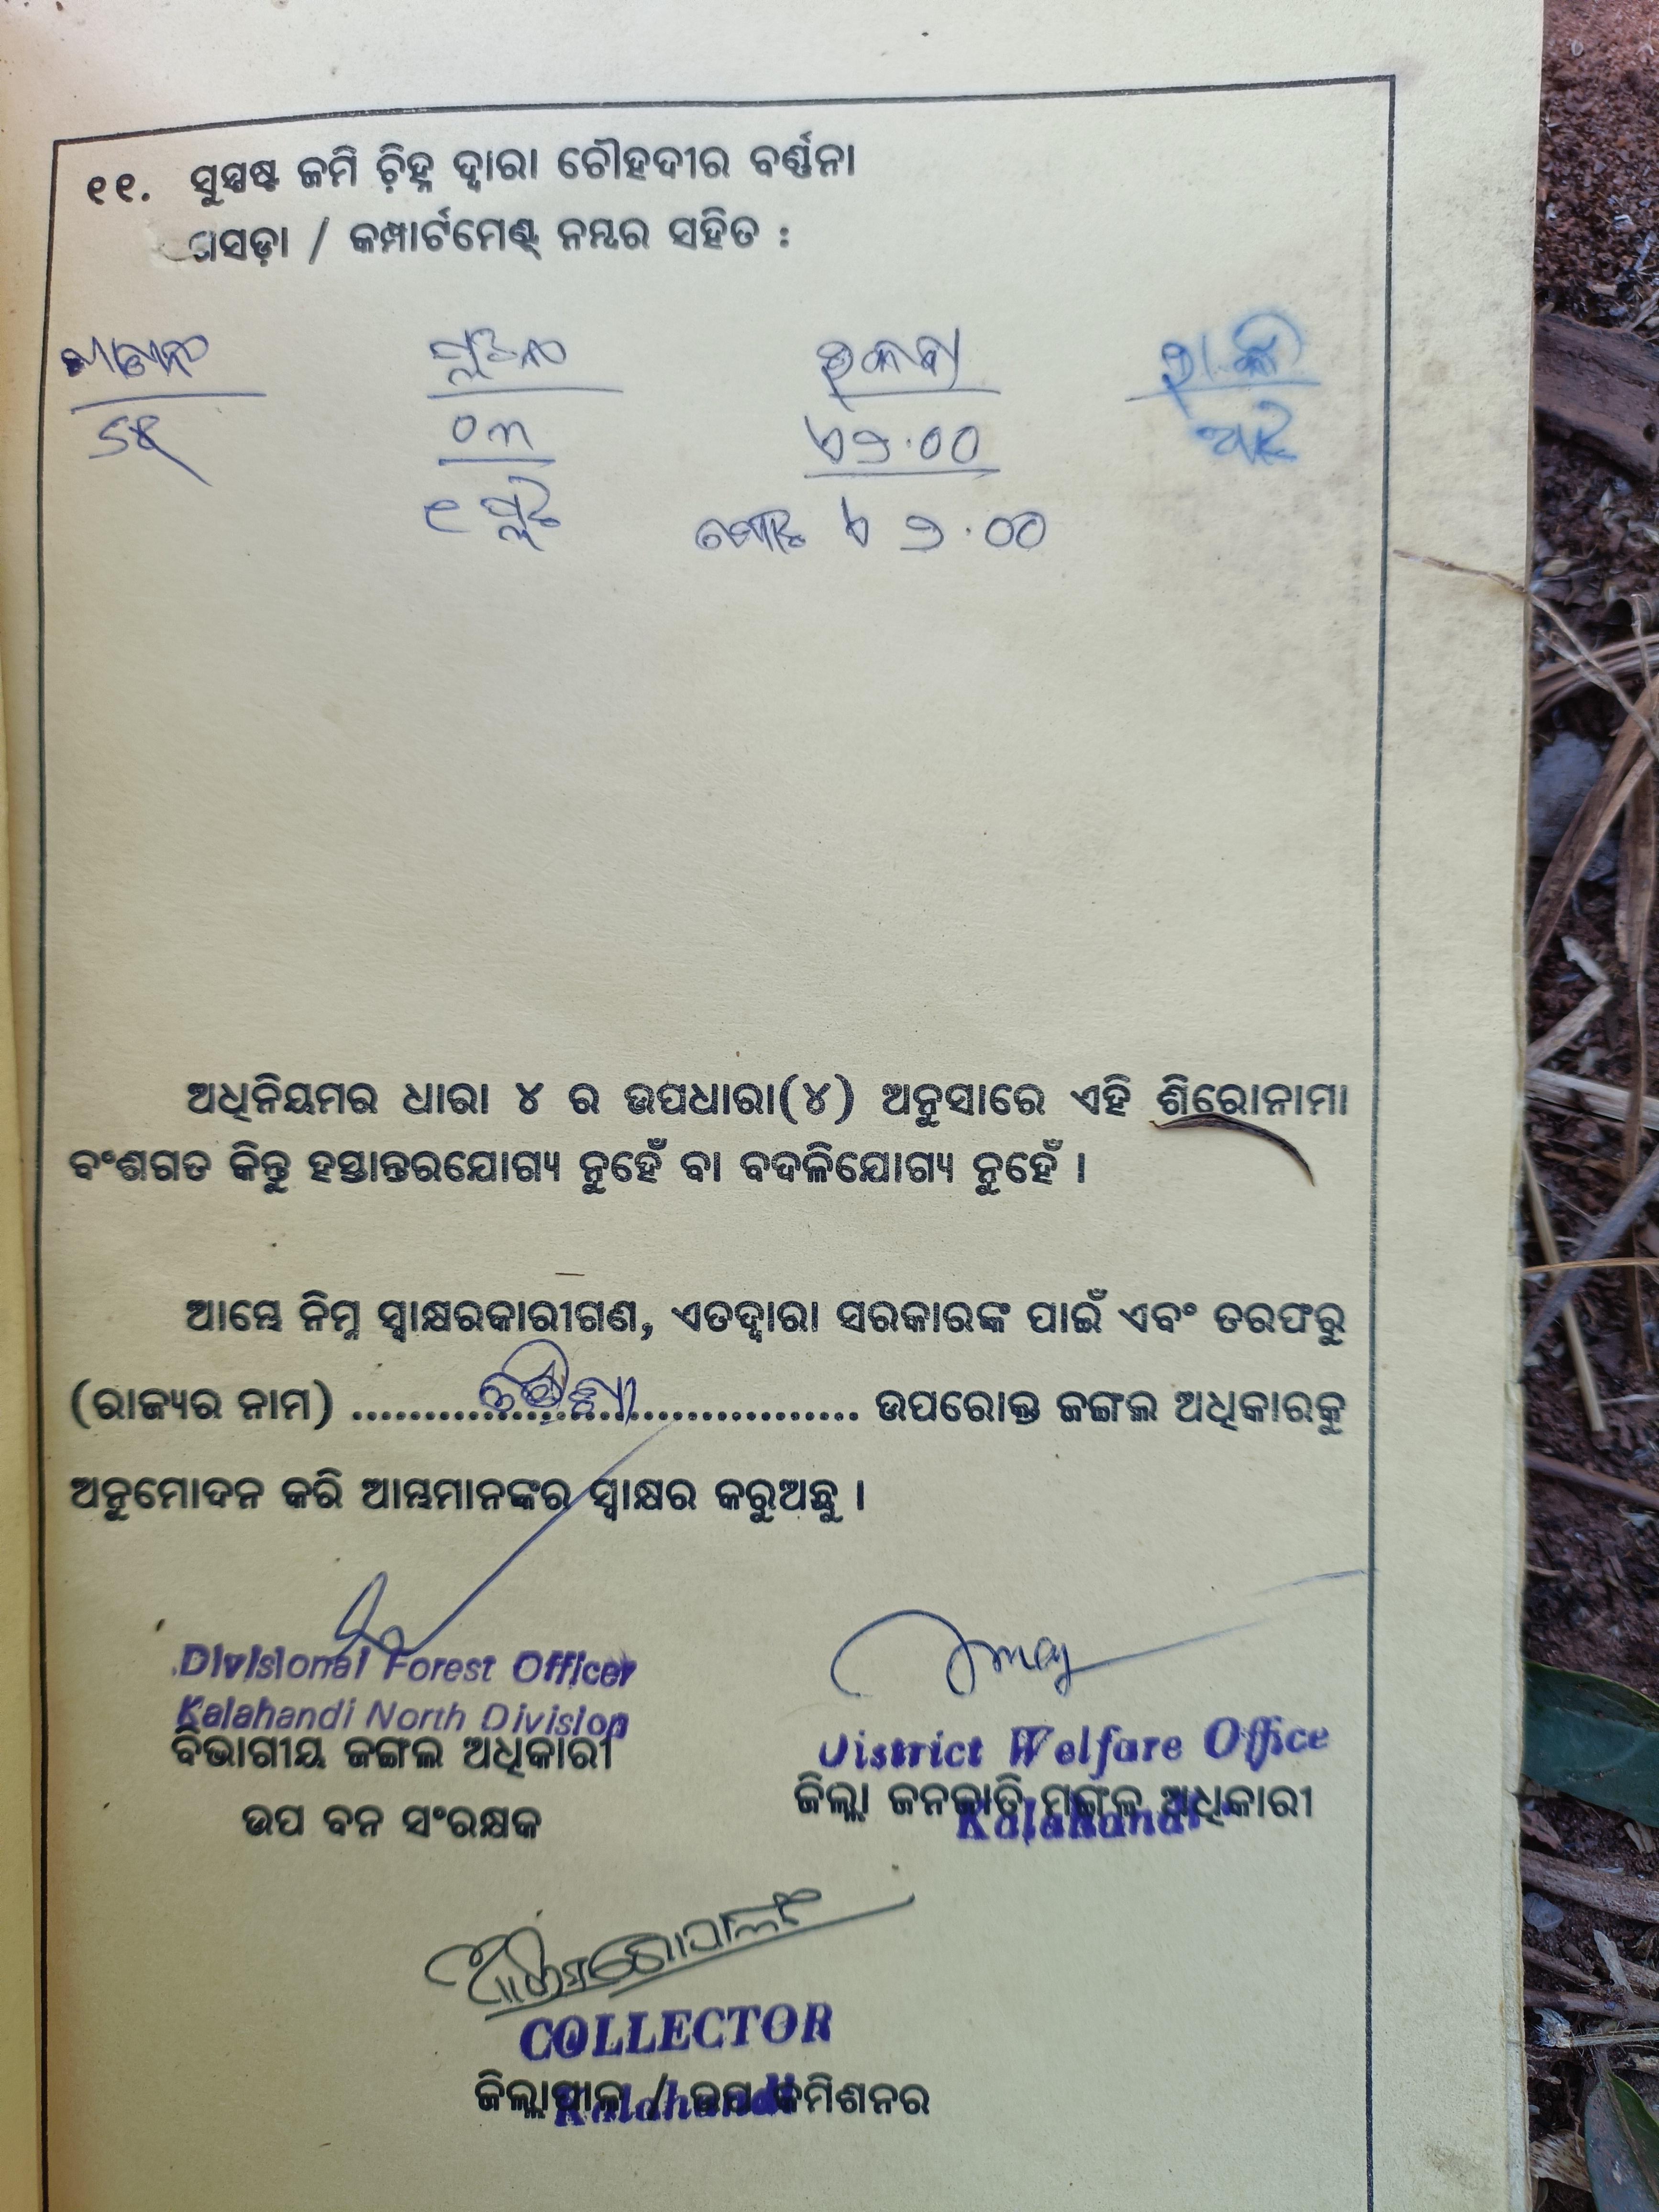 ୧୧. ସୁସ୍ପଷ୍ଟ ଜମି ଚିହ୍ନ ଦ୍ଵାରା ଚୌହଦୀର ବର୍ଣ୍ଣନା
ଖସଡ଼ା / କମ୍ପାର୍ଟମେଣ୍ଟ୍ ନମ୍ବର ସହିତ :
ପ୍ଲଟ ନଂ ରକବା
୦୩
୧ ପ୍ଲଟ ମୋଟ
ଅଧିନିୟମର ଧାରା ୪ ର ଉପଧାରା(୪) ଅନୁସାରେ ଏହି ଶିରୋନାମା
ବଂଶଗତ କିନ୍ତୁ ହସ୍ତାନ୍ତରଯୋଗ୍ୟ ନୁହେଁ ବା ବଦଳିଯୋଗ୍ୟ ନୁହେଁ ।
ଆମ୍ଭେ ନିମ୍ନ ସ୍ଵାକ୍ଷରକାରୀଗଣ, ଏତଦ୍ଵାରା ସରକାରଙ୍କ ପାଇଁ ଏବଂ ତରଫରୁ
(ରାଜ୍ୟର ନାମ) .................................... ଉପରୋକ୍ତ ଜଙ୍ଗଲ ଅଧିକାରକୁ
ଅନୁମୋଦନ କରି ଆମ୍ଭମାନଙ୍କର ସ୍ଵାକ୍ଷର କରୁଅଛୁ ।
Divisional Forest Officer
Kalahandi North Division
ବିଭାଗୀୟ ଜଙ୍ଗଲ ଅଧିକାରୀ
ଉପ ବନ ସଂରକ୍ଷକ
District Welfare Office
ଜିଲ୍ଲା ଜନଜାତି ମଙ୍ଗଳ ଅଧିକାରୀ
Kalahandi
COLLECTOR
ଜିଲ୍ଲାପାଳ / ଉପ କମିଶନର
Kalahandi